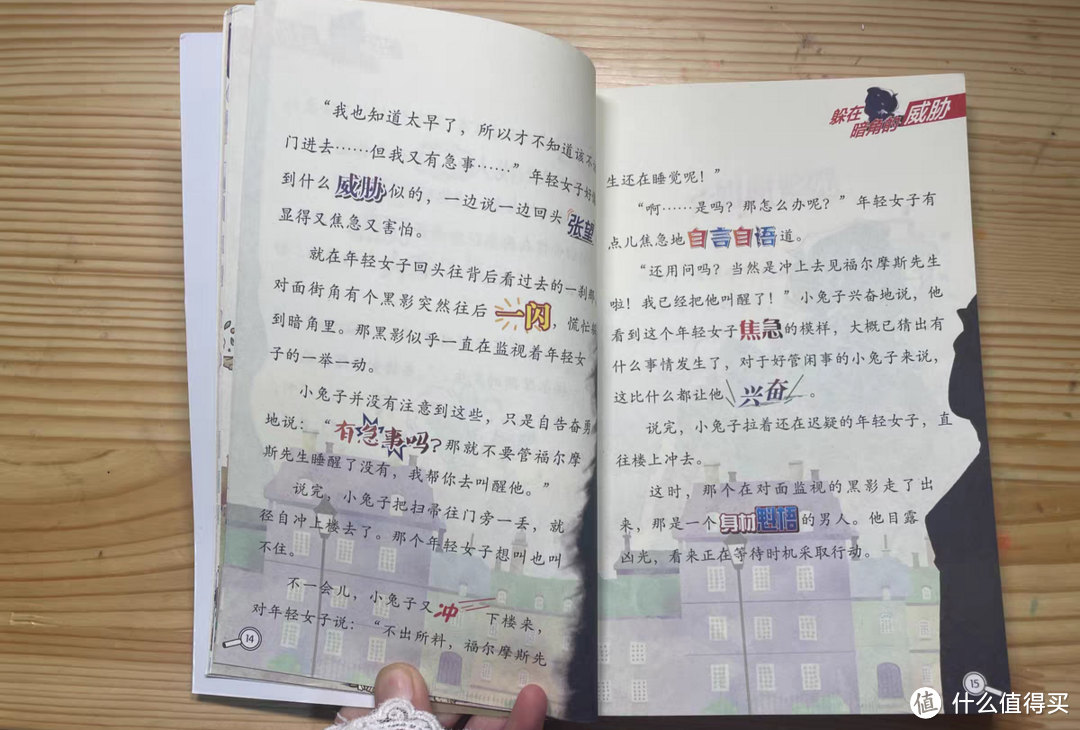 “我也知道太早了，所以才不知道该不
门进去……但我又有急事……”年轻女子好
到什么威胁似的，一边说一边回头张望
显得又焦急又害怕。
就在年轻女子回头往背后看过去的一刹那
对面街角有个黑影突然往后一闪，慌忙
到暗角里。那黑影似乎一直在监视着年轻女
子的一举一动。
小兔子并没有注意到这些，只是自告奋勇
地说：“有急事吗？那就不要管福尔摩
斯先生睡醒了没有，我帮你去叫醒他。”
说完，小兔子把扫帚往门旁一丢，就
径自冲上楼去了。那个年轻女子想叫也叫
不住。
不一会儿，小兔子又冲下楼来，
对年轻女子说：“不出所料，福尔摩斯先
14
躲在
暗角的威胁
生还在睡觉呢！”
“啊……是吗？那怎么办呢？”年轻女子有
点儿焦急地自言自语道。
“还用问吗？当然是冲上去见福尔摩斯先生
啦！我已经把他叫醒了！”小兔子兴奋地说，他
看到这个年轻女子焦急的模样，大概已猜出有
什么事情发生了，对于好管闲事的小兔子来说，
这比什么都让他兴奋。
说完，小兔子拉着还在迟疑的年轻女子，直
往楼上冲去。
这时，那个在对面监视的黑影走了出
来，那是一个身材魁梧的男人。他目露
凶光，看来正在等待时机采取行动。
15
值 什么值得买